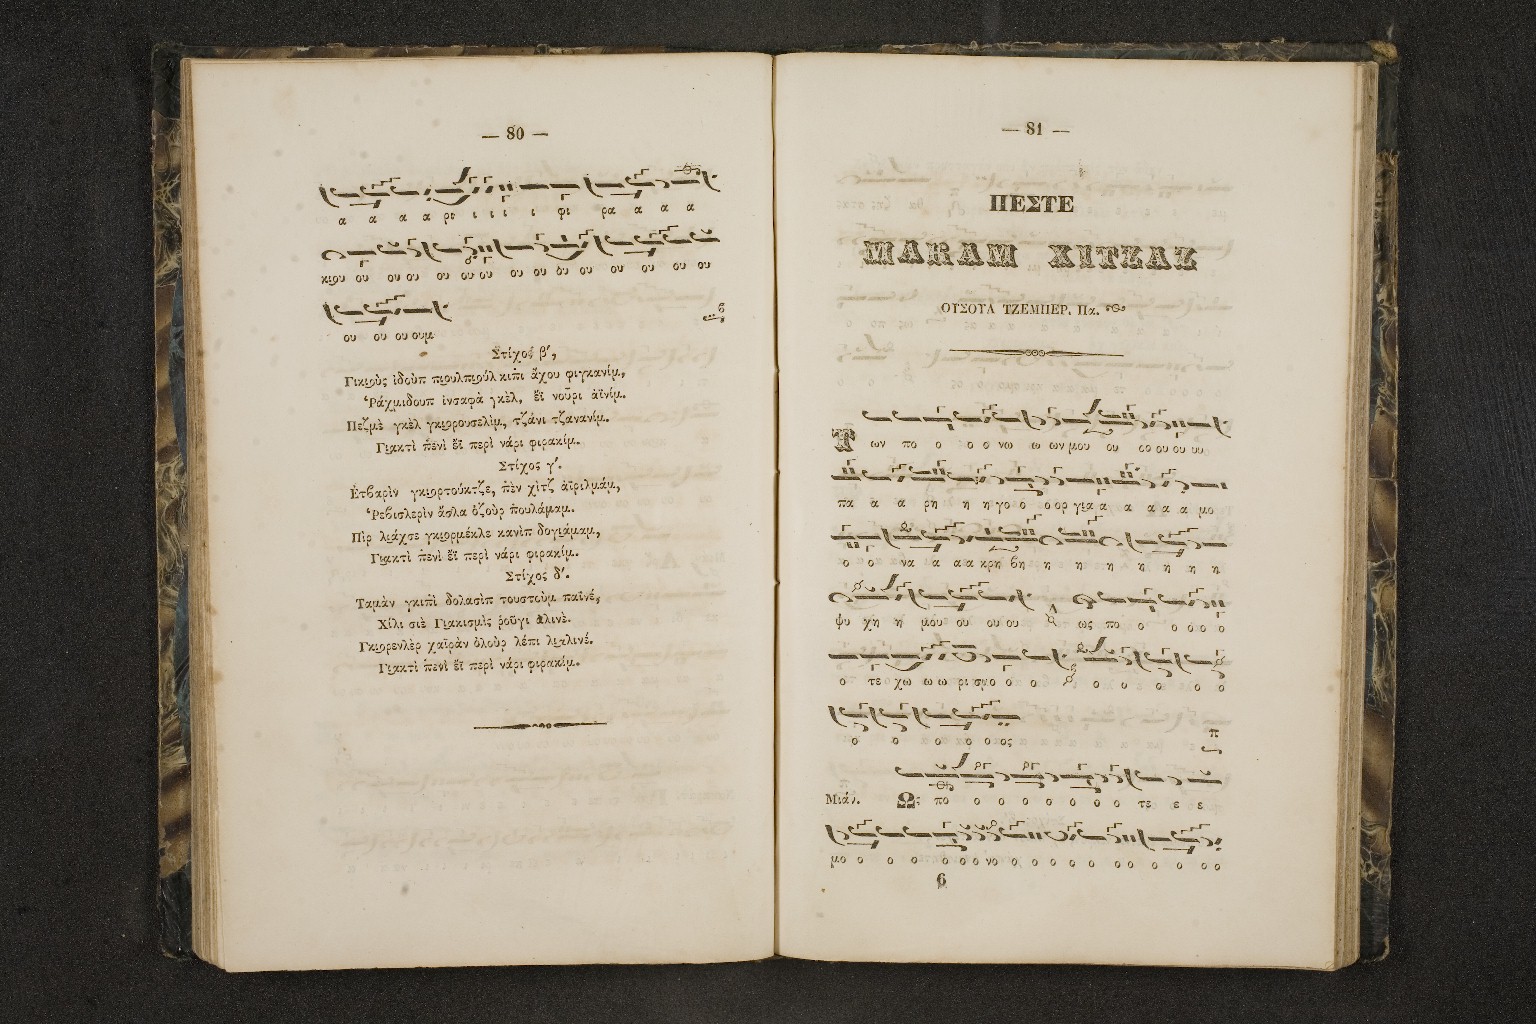 — 80 —
α α α α ρι ι ι ι ι φι ρα α α α
κιου ου ου ου ου ου ου ου ου ου ου ου ου ου ου
ου ου ου ουμ
Στίχος β΄,
Γκιοὺς ἰδοὺπ πιουλπιοὺλ κιπὶ ἄχου φιγκανίμ,
Ῥάχμιδουπ ἰνσαφὰ γκὲλ, ἔϊ νοῦρι ἀϊνίμ.
Πεζμὲ γκὲλ γκιορουσελὶμ, τζάνι τζανανίμ.
Γιακτὶ πενὶ ἔϊ περὶ νάρι φιρακίμ.
Στίχος γ΄.
Ἐτβαρὶν γκιορτούκτζε, πὲν χὶτζ ἀϊριλμάμ,
Ῥεβισλερὶν ἄσλα ὀζοὺρ πουλάμαμ.
Πὶρ λιάχσε γκιορμέκλε κανὶπ δογιάμαμ,
Γιακτὶ πενὶ ἔϊ περὶ νάρι φιρακίμ.
Στίχος δ΄.
Ταμὰν γκιπὶ δολασὶπ τουστοὺμ παϊνέ,
Χίλι σιὲ Γιακισμὶς ῥοῦγι ἀλινὲ.
Γκιορενλὲρ χαϊρὰν ὀλοὺρ λέπι λιαλινέ.
Γιακτὶ πενὶ ἔϊ περὶ νάρι φιρακίμ.
— 81 —
ΠΕΣΤΕ
ΜΑΚΑΜ ΧΙΤΖΑΖ
ΟΥΣΟΥΛ ΤΖΕΜΠΕΡ. Πα.
Τ ων πο ο ο ο νω ω ων μου ου ου ου ου
πα α α ρη η η γο ο ο ορ για α α α α α μο
ο ο να α α α κρη βη η η η η η η η
ψυ χη η μου ου ου ου ως πο ο ο ο ο ο
ο τε χω ω ω ρι σμο ο ο ο ο υ ο ο ο
ο ο ο ο ο ο ος
π
Μιάλ. Ως πο ο ο ο ο ο ο ο τε ε ε
μο ο ο ο ο ο ο ο νο ο ο ο ο ο ο ο ο ο ο
6